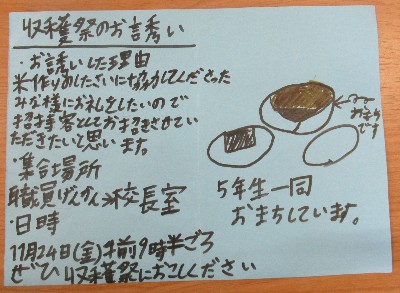 収穫祭のお誘い
・お誘いした理由
米作りのしたさいに協力してくださった
みな様にお礼をしたいので
招待客としてお招きさせてい
ただきたいと思います。
・集合場所
職員げんかん→校長室
・日時
11月24日(金)午前9時半ごろ
ぜひ 収穫祭におこしください
おまち
です
5年生一同
おまちしています。